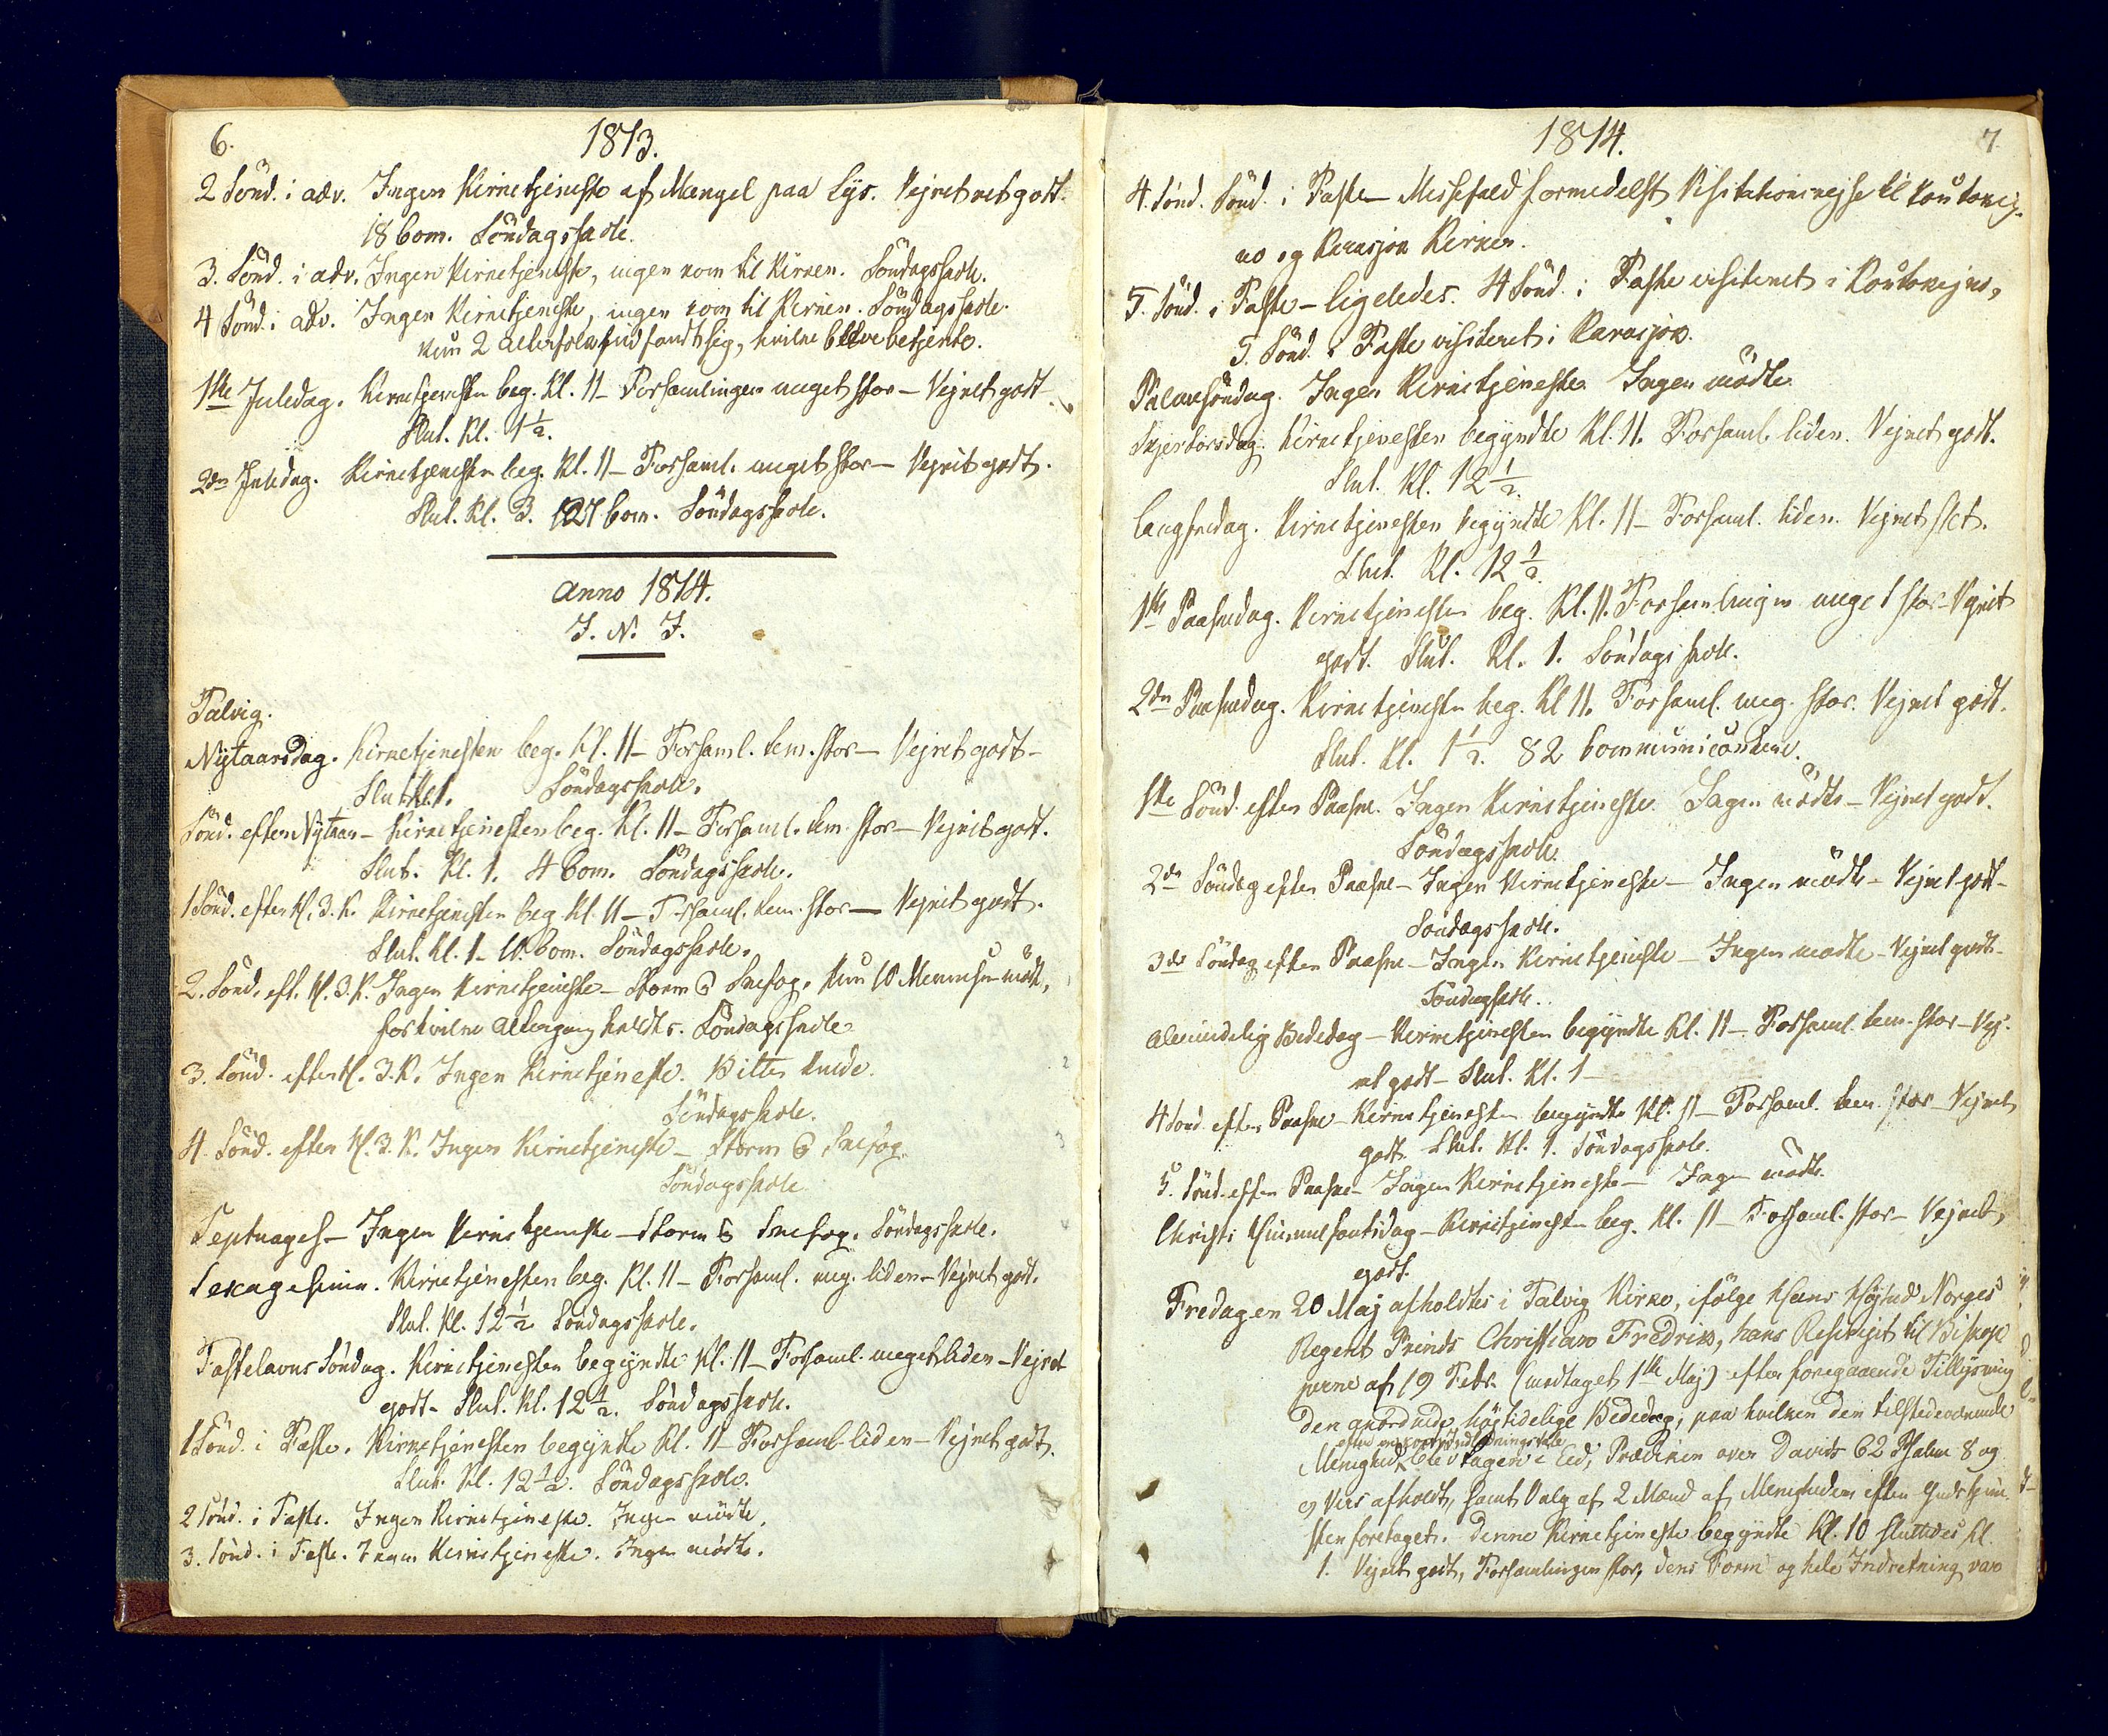 6.
1813.
2 Sönd. i adv. Ingen Kirketjeneste af Mangel paa Lys. Vejret ret godt.
18 Com. Söndagsskole.
3. Sönd. i adv. Ingen Kirketjeneste, ingen kom til Kirken. Söndagsskole.
4 Sönd. i adv. Ingen Kirketjeneste, ingen kom til Kirken. Söndagsskole.
kun 2 Altersfolk indfandt sig, hvilke bleve betjente.
1ste Juledag. Kirketjenesten beg. Kl. 11 – Forsamlingen meget stor – Vejret godt.
Slut. Kl. 1½.
2den Juledag. Kirketjenesten beg. Kl. 11 – Forsaml. meget stor – Vejret godt.
Slut. Kl. 3. 127 Com. Söndagsskole.
Anno 1814.
I. N. J.
Talvig.
Nytaarsdag. Kirketjenesten beg. Kl. 11 – Forsaml. tem. stor – Vejret godt –
Slut Kl. 1. Söndagsskole.
Sönd. efter Nytaar – Kirketjenesten beg. Kl. 11 – Forsaml. tem. stor – Vejret godt.
Slut. Kl. 1. 4 Com. Söndagsskole.
1 Sönd. efter H. 3. K. Kirketjenesten beg. Kl. 11 – Forsaml. tem. stor – Vejret godt.
Slut. Kl. 1 – 10. Com. Söndagsskole.
2. Sönd. eft. H. 3. K. Ingen Kirketjeneste – Storm & Snefog. Kun 10 Mennesker mödte,
for hvilke Altergang holdtes. Söndagsskole.
3. Sönd. efter H. 3. K. Ingen Kirketjeneste. Bitter Kulde.
Söndagsskole.
4. Sönd. efter H. 3. K. Ingen Kirketjeneste – Storm & Snefog.
Söndagsskole
Septuages – Ingen Kirketjeneste – Storm & Snefog. Söndagsskole.
Sexagesima. Kirketjenesten beg. Kl. 11 – Forsaml. meg. liden – Vejret godt.
Slut. Kl. 12½ Söndagsskole.
Fastelavns Söndag. Kirketjenesten begyndte Kl. 11 – Forsaml. meget liden – Vejret
godt – Slut. Kl. 12½. Söndagsskole.
1 Sönd. i Faste. Kirketjenesten begyndte Kl. 11 – Forsaml. liden – Vejret godt.
Slut. Kl. 12½. Söndagsskole.
2 Sönd. i Faste. Ingen Kirketjeneste. Ingen mödte.
3. Sönd. i Faste. Ingen Kirketjeneste. Ingen mödte.
1814.
7
4. Sönd. Sönd. i Faste – Messefald formedelst Visitationsrejse til Koutokej-
no og Karasjok Kirker.
5. Sönd. i Faste – ligeledes. 4 Sönd. i Faste visiteret i Koutokejno,
5. Sönd. i Faste visiteret i Karasjok.
Palmesöndag. Ingen Kirketjeneste Ingen mödte
Skjertorsdag. Kirketjenesten begyndte Kl. 11. Forsaml. liden. Vejret godt.
Slut. Kl. 12½.
Langfredag. Kirketjenesten begyndte Kl. 11 – Forsaml. liden. Vejret slet.
Slut. Kl. 12½.
1ste Paaskedag. Kirketjenesten beg. Kl. 11. Forsamlingen meget stor – Vejret
godt. Slut. Kl. 1. Söndagsskole.
2den Paaskedag. Kirketjenesten beg. Kl 11. Forsaml. meg. stor. Vejret godt.
Slut. Kl. 1½. 82 Communicantere.
1ste Sönd. efter Paaske. Ingen Kirketjeneste Ingen mödte – Vejret godt.
Söndagsskole.
2den Söndag efter Paaske – Ingen Kirketjeneste – Ingen mödte – Vejret godt –
Söndagsskole.
3die Söndag efter Paaske – Ingen Kirketjeneste – Ingen mödte – Vejret godt –
Söndagsskole.
Almindelig Bededag – Kirketjenesten begyndte Kl. 11 – Forsaml. tem. stor – Vej-
ret godt – Slut. Kl. 1 –
4 Sönd. efter Paaske – Kirketjenesten begyndte Kl. 11 – Forsaml. tem. stor – Vejret
godt Slut. Kl. 1. Söndagsskole.
5. Sönd. efter Paaske – Ingen Kirketjeneste – Ingen mödte.
Christi Himmelfartsdag – Kirketjenesten beg. Kl. 11 – Forsaml. stor – Vejret
godt.
Fredagen 20 Maj afholdtes i Talvig Kirke, ifölge Hans Höjhed Norges
Regent Prinds Christian Fredriks, hans Rescript til Biskop
perne af 19 Febr. (modtaget 1ste Maj) efter foregaaende Tillysning
den anordnede höjtidelige Bededag, paa hvilken den tilstedeværende
Menighed blev tagen i Eed, Prædiken over Davids 62 Psalm 8 og
9 Vers afholdt, samt Valg af 2 Mænd af Menigheden efter Gudstjene-
sten foretaget. Denne Kirketjeneste begyndte Kl. 10 sluttedes Kl.
1. Vejret godt, Forsamlingen stor, dens Form og hele Indretning var